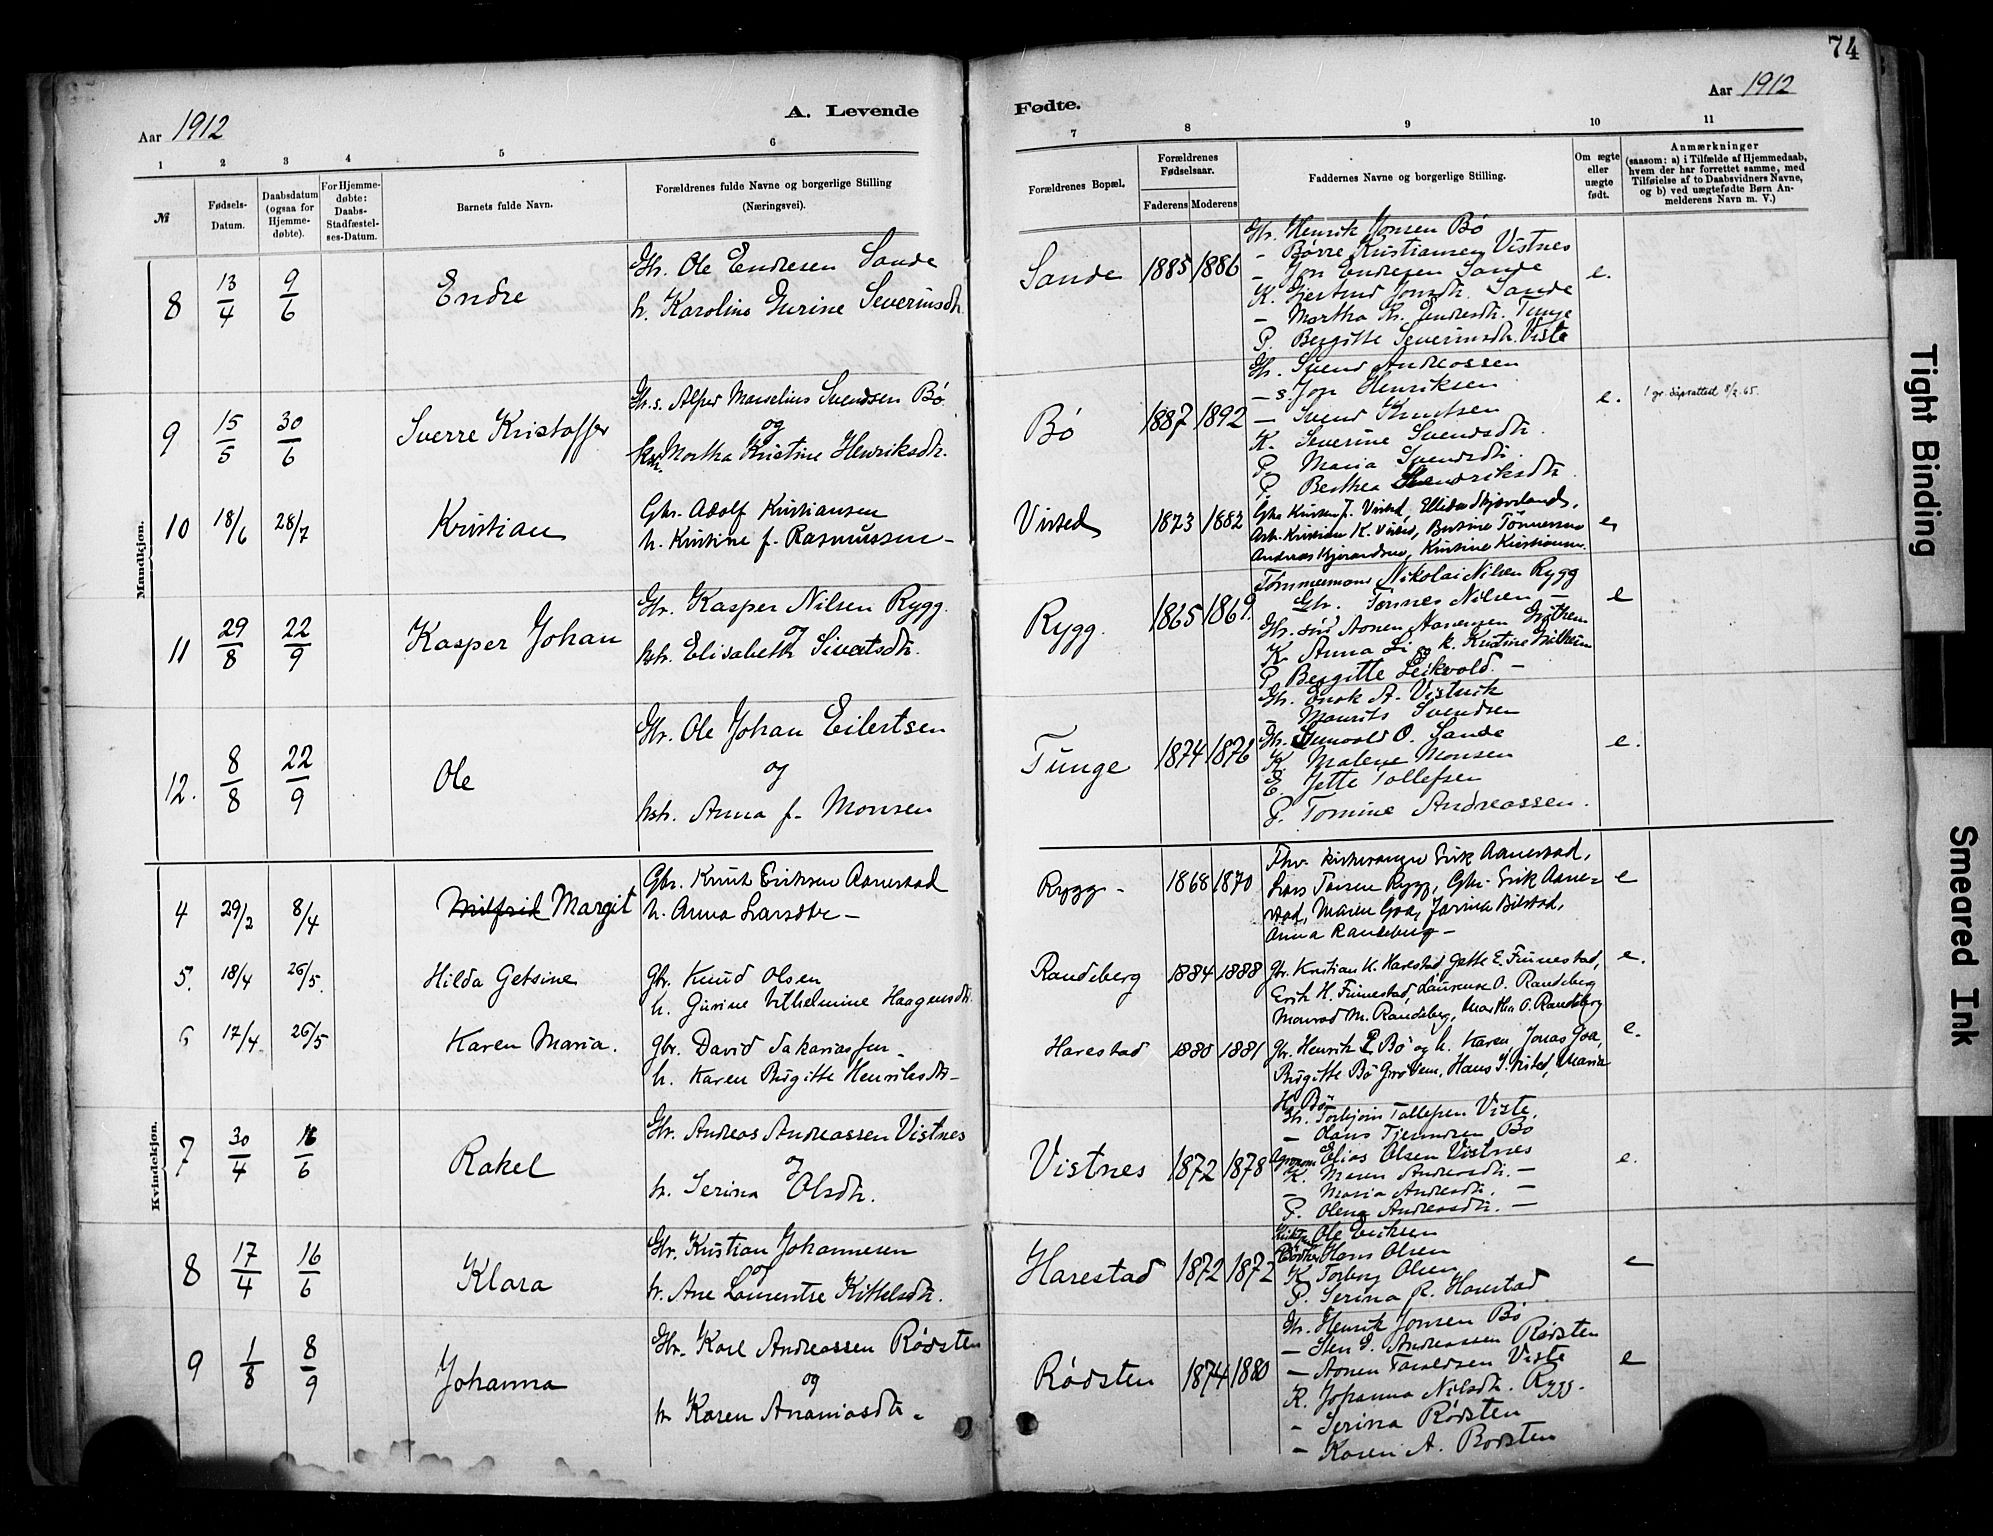 74
Aar 1912
A. Levende
Fødte.
Aar 1912
1 2 3 4 5 6 7 8 9 10 11
№
Fødsels-Datum.
Daabsdatum (ogsaa for Hjemme-døbte).
For Hjemme-døbte: Daabs-Stadfæstel-ses-Datum.
Barnets fulde Navn.
Forældrenes fulde Navne og borgerlige Stilling (Næringsvei).
Forældrenes Bopæl.
Forældrenes Fødselsaar.
Faderens Moderens
Faddernes Navne og borgerlige Stilling.
Om ægte eller uægte født.
Anmærkninger
(saasom: a) i Tilfælde af Hjemmedaab, hvem der har forrettet samme, med Tilføielse af to Daabsvidners Navne, og b) ved uægtefødte Børn An-melderens Navn m. V.)
Mandkjøn.
8 13/4 9/6 Endre
Gbr. Ole Endresen Sande
h. Karoline Gurine Severinsdtr.
Sande 1885 1886
Gbr. Henrik Jonsen Bö
- Børre Kristiansen Vistnes
- Jon Endresen Sande
K. Gjertrud Jonsdtr. Sande
- Martha Kr. Endresdtr. Tunge
P. Bergitte Severinsdtr. Viste
e.
9 15/5 30/6 Sverre Kristoffer
Gbr.s. Alfer Marselius Svendsen Bö
og
Martha Kristine Henriksdtr.
Bö 1887 1892
Gbr. Svend Andreassen
- s. Jon Henriksen
- Svend Knutsen
K. Severine Svendsdtr.
P. Maria Svendsdtr.
P. Berthea Henriksdtr.
e.
1 gr. dåpsattest 8/2 65.
10 18/6 28/7 Kristian
Gbr. Adolf Kristiansen
h. Kristine f. Rasmussen -
Visted 1873 1882
Andreas Kristine Kristiansen.
e
11 29/8 22/9 Kasper Johan
Gbr. Kasper Nilsen Rygg.
og
hstr. Elisabeth Sivertsdtr.
Rygg. 1865 1869.
Tømmermand Nikolai Nilsen Rygg
Gbr. Tønnes Nilsen -
K Anna Li
P. Bergitte Leikvold. -
e
12. 8/8 22/9 Ole
Gbr. Ole Johan Eilertsen
og
hstr. Anna f. Monsen
Tunge 1874 1876
Gbr. Enok A. Vistnes
- Maurits Svendsen
Gbr. Gunvald O. Sande
K. Malene Monsen
E. Jette Tollefsen
P. Tomine Andreassen.
e.
Kvindekjøn.
4 29/2 8/4 Milfrid Margit
Gbr. Knut Eriksen Aanestad
h. Anna Larsdtr -
Rygg - 1868 1870
Fhv. kirkesanger Erik Aanestad,
Lars Tarsen Rygg, Gbr. Erik Aane=
stad, Maren Goa, Jarina Bilstad,
Anna Randeberg -
e
5. 18/4 26/5. Hilda Getsine
Gbr. Knud Olsen
h. Gurine Vilhelmine Haagensdtr.
Randeberg 1884 1888
Gbr. Kristian K. Harestad, Jette E. Finnestad,
Erik H. Finnestad, Laurense O. Randeberg
Monrad M. Randeberg, Martha O. Randeberg
e.
6 17/4 26/5 Karen Maria.
Gbr. David Sakariassen -
h. Karen Birgitte Henriksdtr -
Harestad 1880 1881
Gbr. Henrik P Bö og h. Karen, Jonas Goa,
Birgitte Bö Maria
H. Bö
e.
7 30/4 16/6 Rakel
Gbr. Andreas Andreassen Vistnes
og
h. Serina Olsdtr.
Vistnes 1872 1878
Gbr. Torbjørn Tollefsen Viste.
- Hans Tjerandsen Bö
Agronom Elias Olsen Vistnes
K. Maren Andreasdtr. -
- Maria Andreasdtr. -
P. Olena Andreasdtr. -
e.
8 17/4 16/6 Klara
Gbr. Kristian Johannesen
og
h. Ane Laurentse Kittelsdtr.
Harestad 1872 1872
Ole Eriksen
Bødker Hans Olsen
K. Torborg Olsen
P. Serina R. Harestad
e
9 1/8 8/9 Johanna
Gbr. Karl Andreassen Rödsten
og
h. Karen Ananiasdtr.
Rödsten 1874 1880
Gbr. Henrik Jonsen Bö
- Sten D. Andreassen Rödsten
- Aanen Taraldsen Viste
K. Johanna Nilsdtr. Rygg.
- Serina Rödsten
- Karen A. Rödsten
e
Tight Binding
Smeared Ink